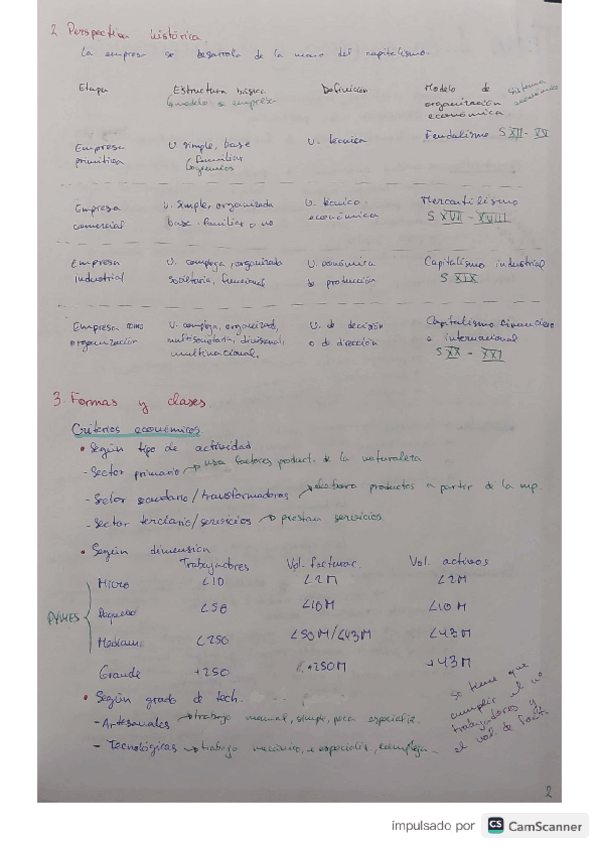 2. Perspectiva histórica.
La empresa se desarrolla de la mano del capitalismo.
Etapa Estructura básica Definición Modelo de sistema económico
(modelo empresa) organización
económica
Empresa U. simple, base U. técnica Feudalismo S XII - XV
primitiva familias
Empresa U. simple, organizada U. técnico- Mercantilismo
comercial base familiar o no económica S XVII - XVIII
Empresa U. compleja, organizada U. económica Capitalismo industrial
industrial societaria, funcional de producción S XIX
Empresa como U. compleja, organizad, U. de decisión Capitalismo financiero
organización multisocietaria, divisional, o de dirección e internacional
multinacional. S XX - XXI
3. Formas y clases.
Criterios económicos
• Según tipo de actividad
- Sector primario → usa factores product. de la naturaleza
- Sector secundario / transformadoras → productos a partir de la mp.
- Sector terciario / servicios → prestan servicios.
• Según dimensión
Trabajadores Vol. facturac. Vol. activos
Micro <10 <2M <2M
PYMES Pequeña <50 <10M <10M
Mediana <250 <50M/<43M <43M
Grande +250 +250M +43M
• Según grado de tech.
- Artesanales → trabajo manual, simple, poca especializ.
- Tecnológicas → trabajo mecánico, especializ, compleja.
se tiene que
cumplir el nº
trabajadores y
el vol. de fact.
2
impulsado por CS CamScanner